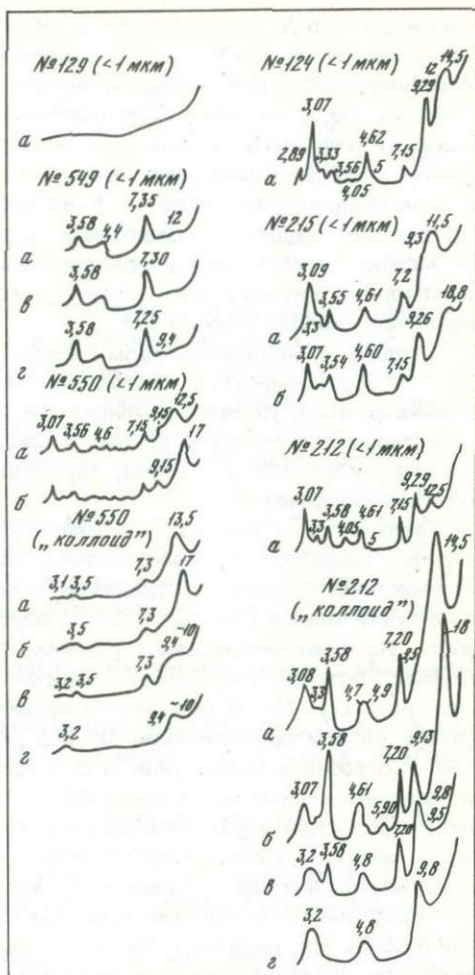 №129 (<1 мкм)
а
№549 (<1 мкм)
3,58 4,4 7,35 12
а
3,58 7,30
в
3,58 7,25 9,4
г
№550 (<1 мкм)
3,07 3,56 4,6 7,15 9,15 12,5
а
9,15 17
б
№550
(„коллоид")
3,1 3,5 7,3 13,5
а
3,5 7,3 17
б
3,2 3,5 7,3 9,4 ~10
в
3,2 9,4 ~10
г
№124 (<1 мкм)
2,89 3,07 3,33 3,56 4,05 4,62 5 7,15 9,29 12 14,5
а
№215 (<1 мкм)
3,09 3,3 3,55 4,61 7,2 9,3 11,5
а
3,07 3,54 4,60 7,15 9,26 18,8
в
№212 (<1 мкм)
3,07 3,3 3,58 4,05 4,61 5 7,15 9,29 12,5
а
№212
(„коллоид")
3,08 3,3 3,58 4,7 4,9 7,20 9,5 14,5
а
3,07 3,58 4,61 5,90 7,20 9,13 ~18
б
3,2 3,58 4,8 7,20 9,5 9,8
в
3,2 4,8 9,8
г